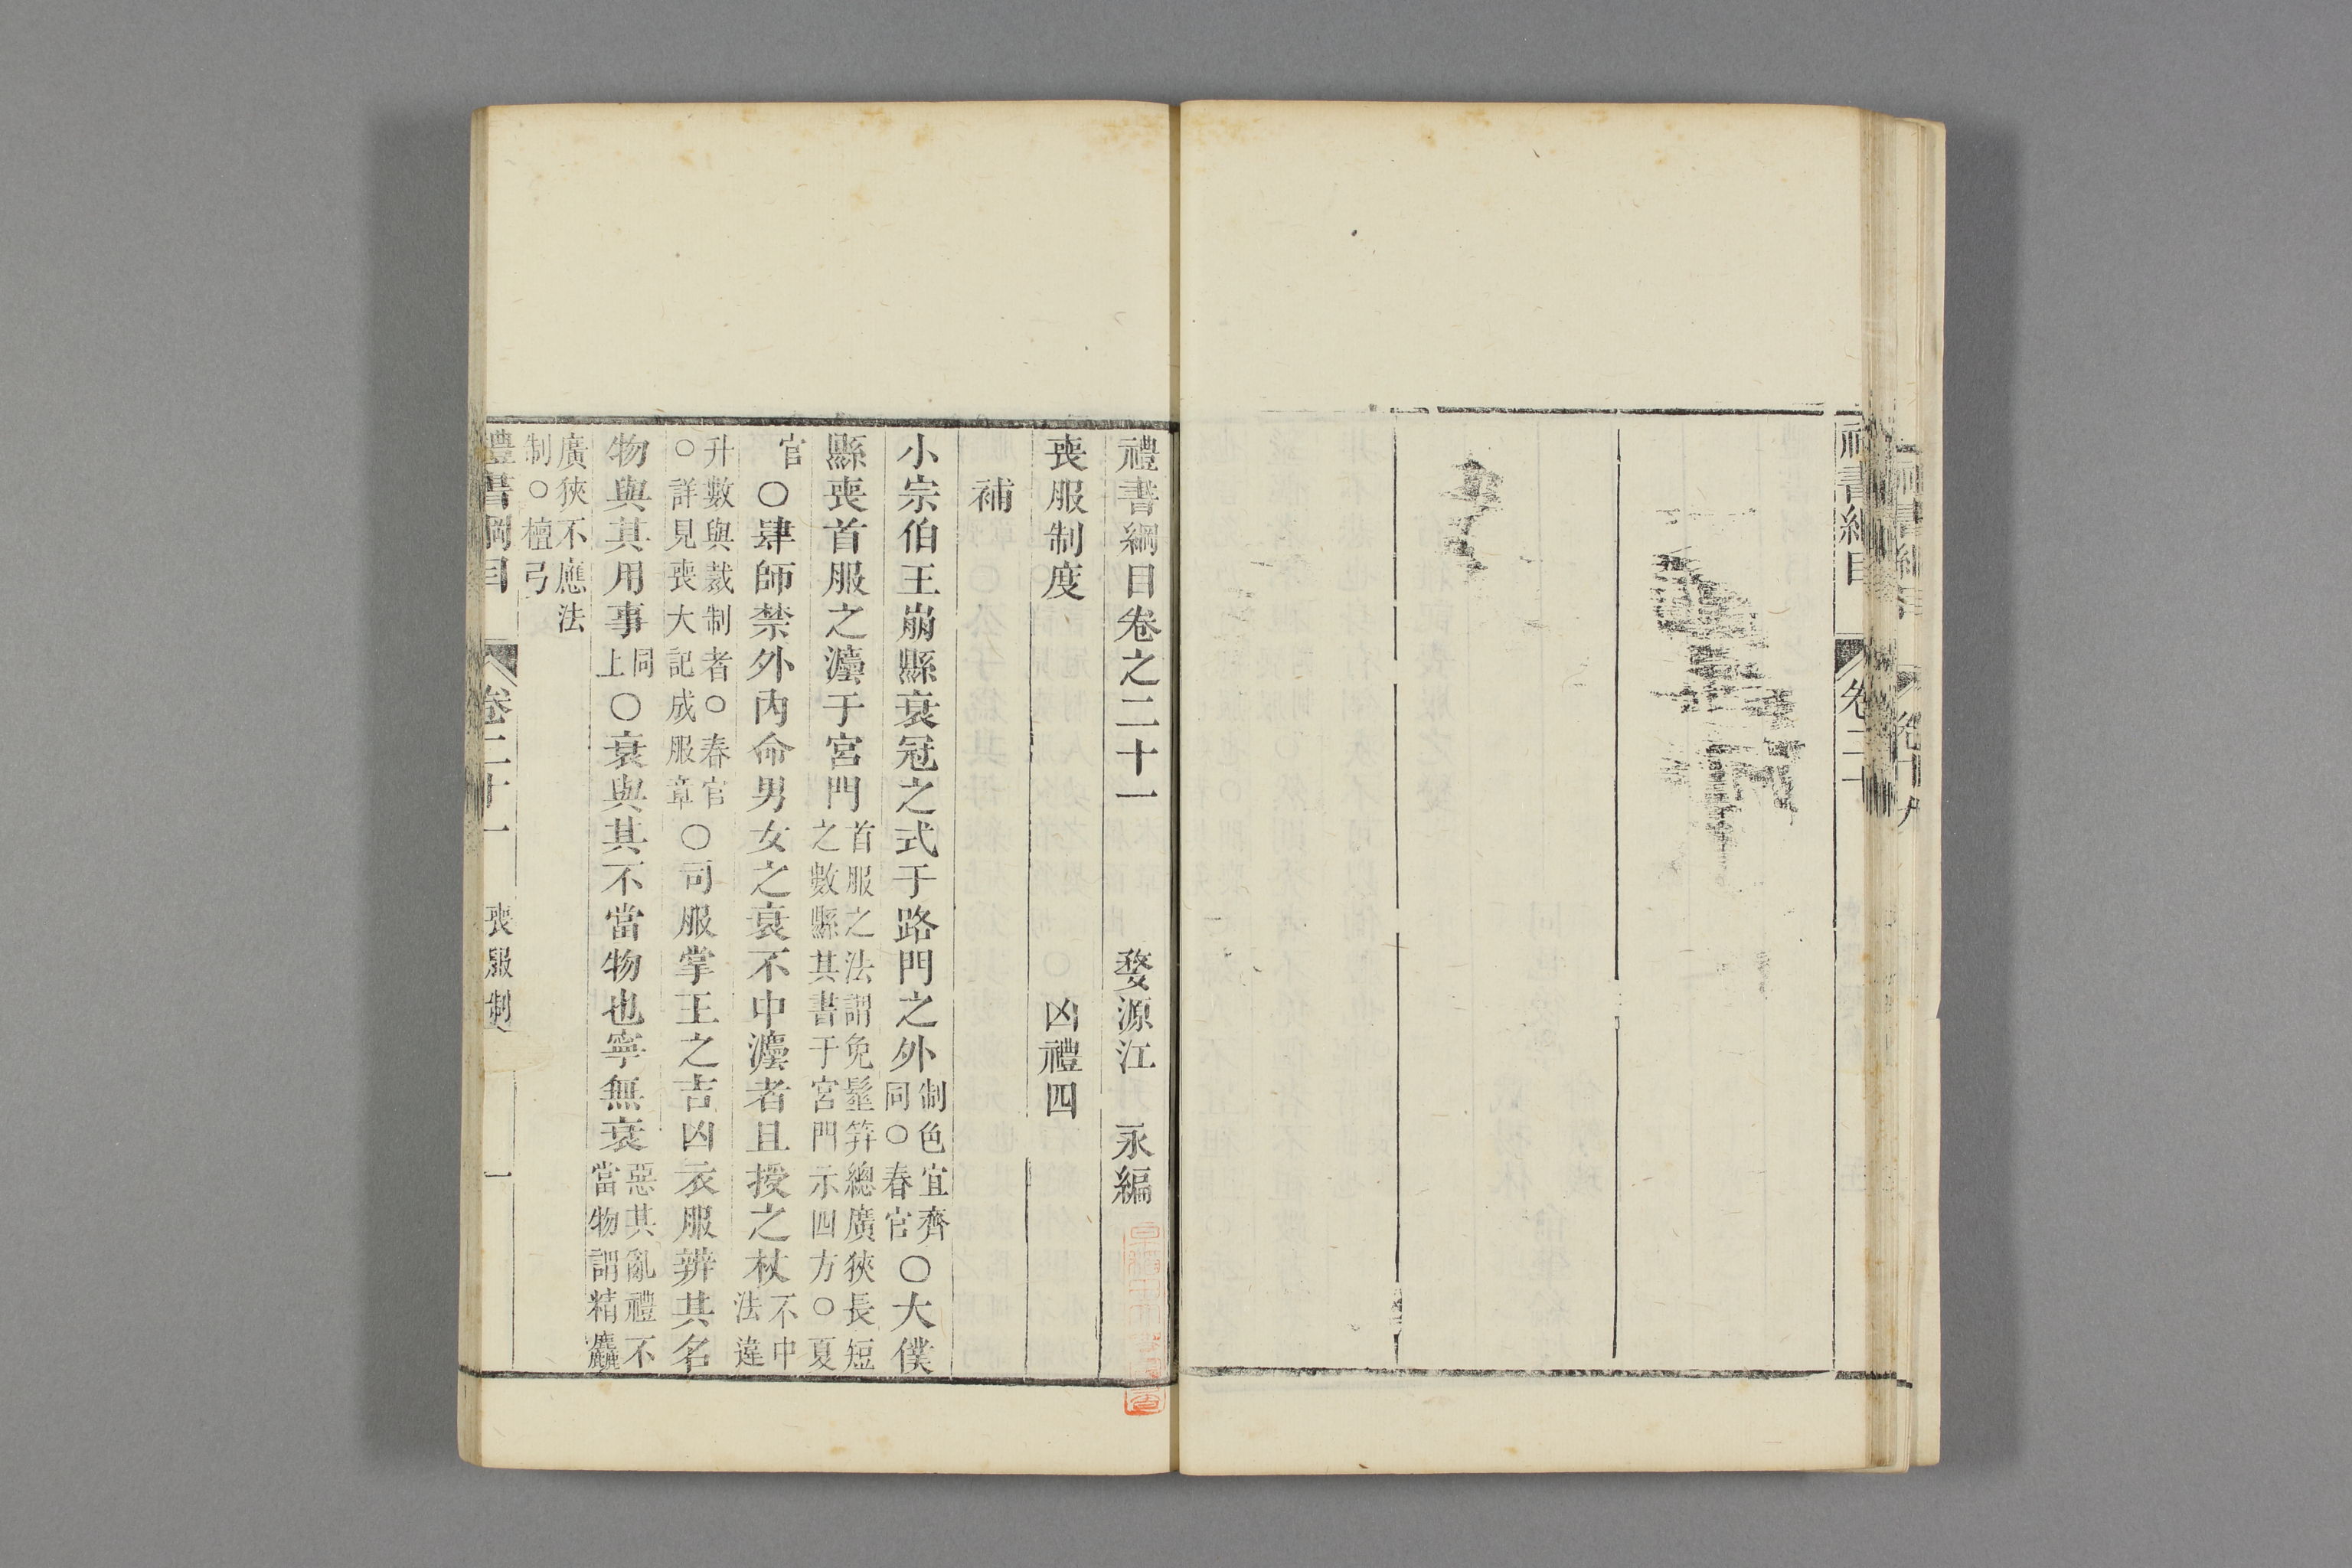 禮書綱目卷之二十一 婺源江 永編
喪服制度 凶禮四
補
小宗伯王崩縣衰冠之式于路門之外制色宜齊同○春官○大僕
縣喪首服之灋于宮門首服之法謂免髽笄總廣狹長短之數縣其書于宮門示四方○夏
官○肆師禁外內命男女之衰不中灋者且授之杖不中法違
升數與裁制者○春官○詳見喪大記成服章○司服掌王之吉凶衣服辨其名
物與其用事同上○衰與其不當物也寧無衰惡其亂禮不當物謂精麤
廣狹不應法制○檀弓
禮書綱目 卷二十一 喪服制 一